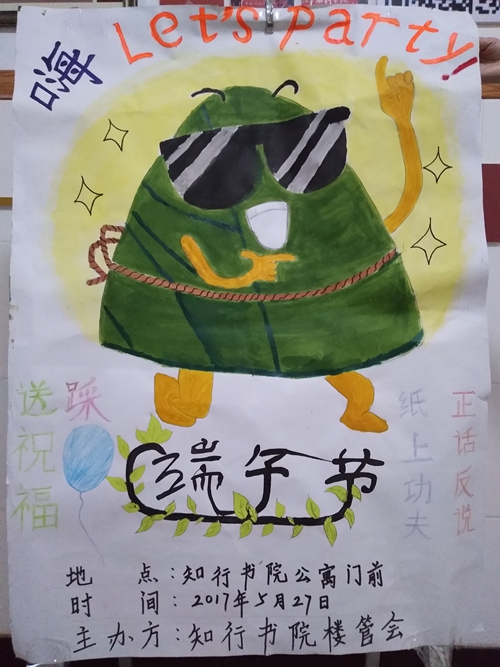 Let's Party!
嗨
送祝福
踩
纸上功夫
正话反说
端午节
地 点：知行书院公寓门前
时 间：2017年5月27日
主办方：知行书院楼管会